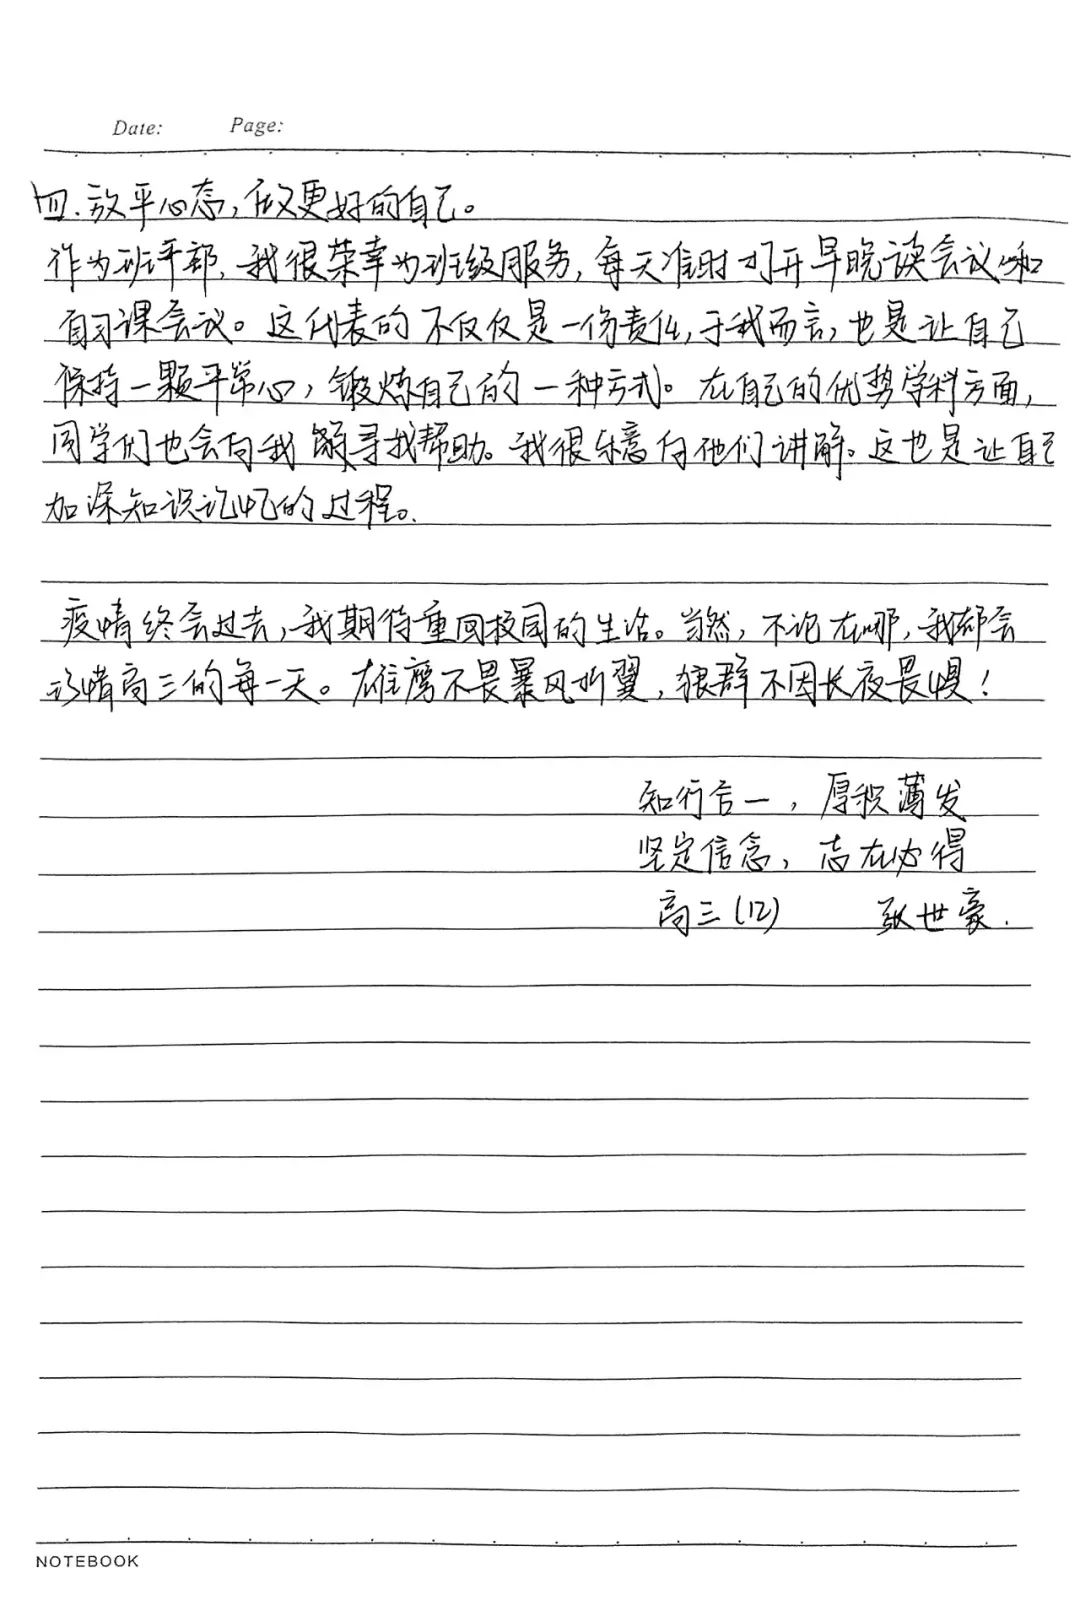 Date: Page:
四.放平心态,做更好的自己。
作为班干部,我很荣幸为班级服务,每天准时打开早晚读会议和
自习课会议。这代表的不仅仅是一份责任,于我而言,也是让自己
保持一颗平常心,锻炼自己的一种方式。在自己的优势学科方面,
同学们也会向我寻找帮助。我很乐意向他们讲解。这也是让自己
加深知识记忆的过程。
疫情终会过去,我期待重回校园的生活。当然,不论在哪,我都会
珍惜高三的每一天。雄鹰不畏暴风折翼,狼群不因长夜畏惧!
知行合一,厚积薄发
坚定信念,志在必得
高三(12) 张世豪.
NOTEBOOK